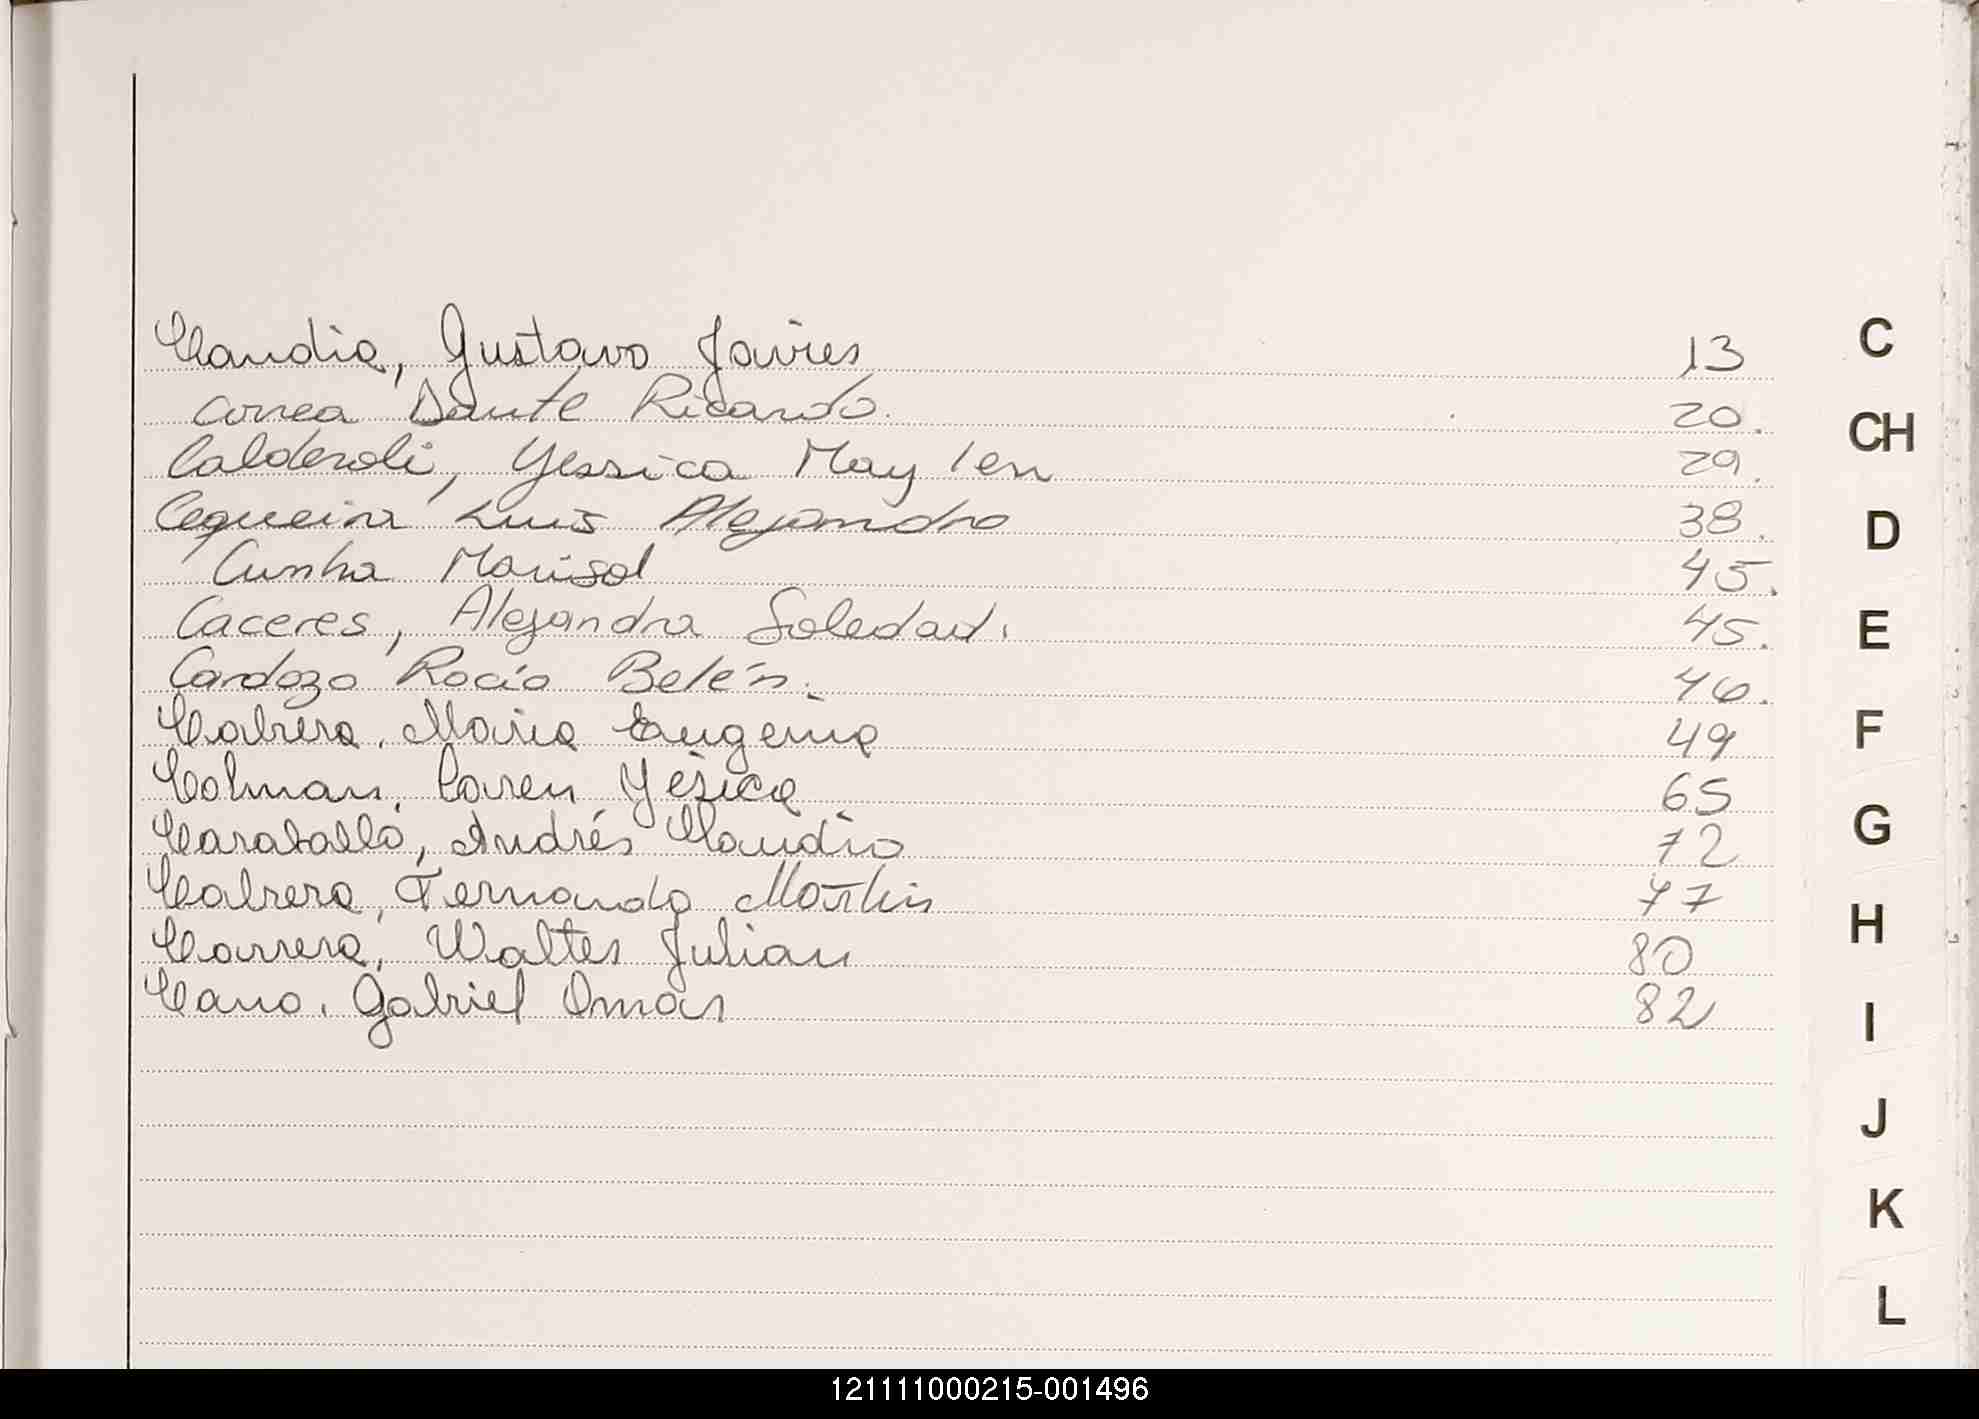 Candia, Gustavo Javier 13
Correa Dante Ricardo. 20.
Calderoli, Yessica Maylen 29.
Cequeira Luis Alejandro 38.
Cunha Marisol 45.
Caceres, Alejandra Soledad. 45.
Cardozo Rocío Belén. 46.
Cabrera, María Eugenia 49
Colman, Caren Yésica 65
Caraballo, Andrés Claudio 72
Cabrera, Fernando Martin 77
Carrera, Walter Julian 80
Cano, Gabriel Omar 82
C
CH
D
E
F
G
H
I
J
K
L
121111000215-001496